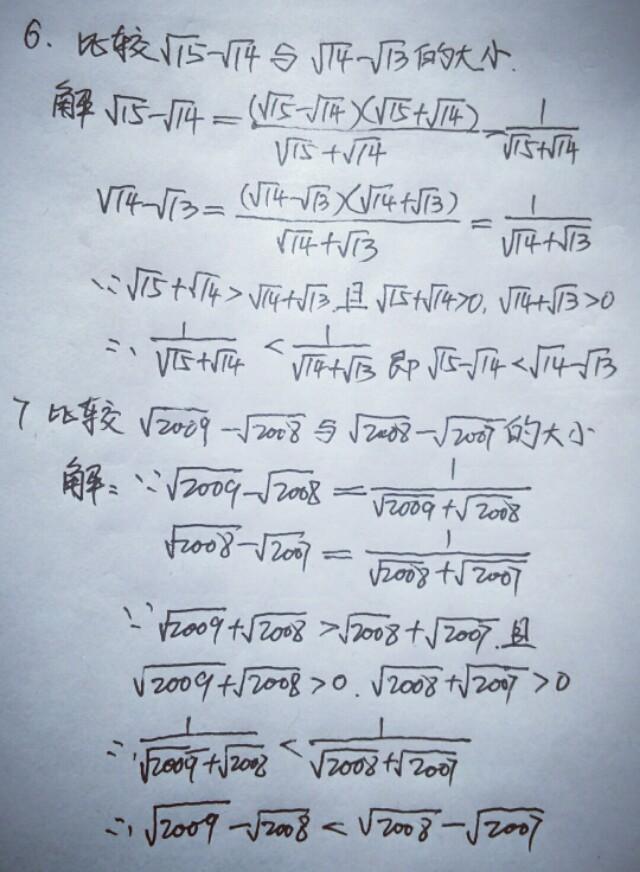 6. 比较√15-√14 与 √14-√13 的大小.
解 √15-√14 = (√15-√14)(√15+√14) / (√15+√14) = 1 / (√15+√14)
√14-√13 = (√14-√13)(√14+√13) / (√14+√13) = 1 / (√14+√13)
∵ √15+√14 > √14+√13, 且 √15+√14>0, √14+√13>0
∴ 1 / (√15+√14) < 1 / (√14+√13) 即 √15-√14 < √14-√13
7 比较 √2009-√2008 与 √2008-√2007 的大小
解: ∵ √2009-√2008 = 1 / (√2009+√2008)
√2008-√2007 = 1 / (√2008+√2007)
∵ √2009+√2008 > √2008+√2007, 且
√2009+√2008 > 0, √2008+√2007 > 0
∴ 1 / (√2009+√2008) < 1 / (√2008+√2007)
∴ √2009-√2008 < √2008-√2007